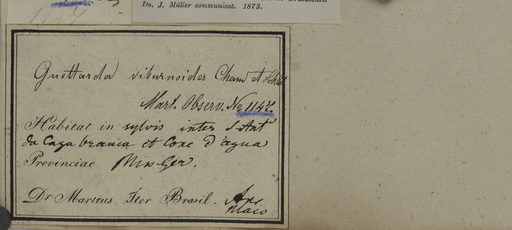 Do. J. Müller communicat. 1873.
Guettarda viburnoides Cham et Schl
Mart. Observ. No 1147.
Habitat in sylvis inter S. Ant
da Caza brania et Coxe d'agua
Provinciae Min-Ger.
Dr Martius Iter Brasil.